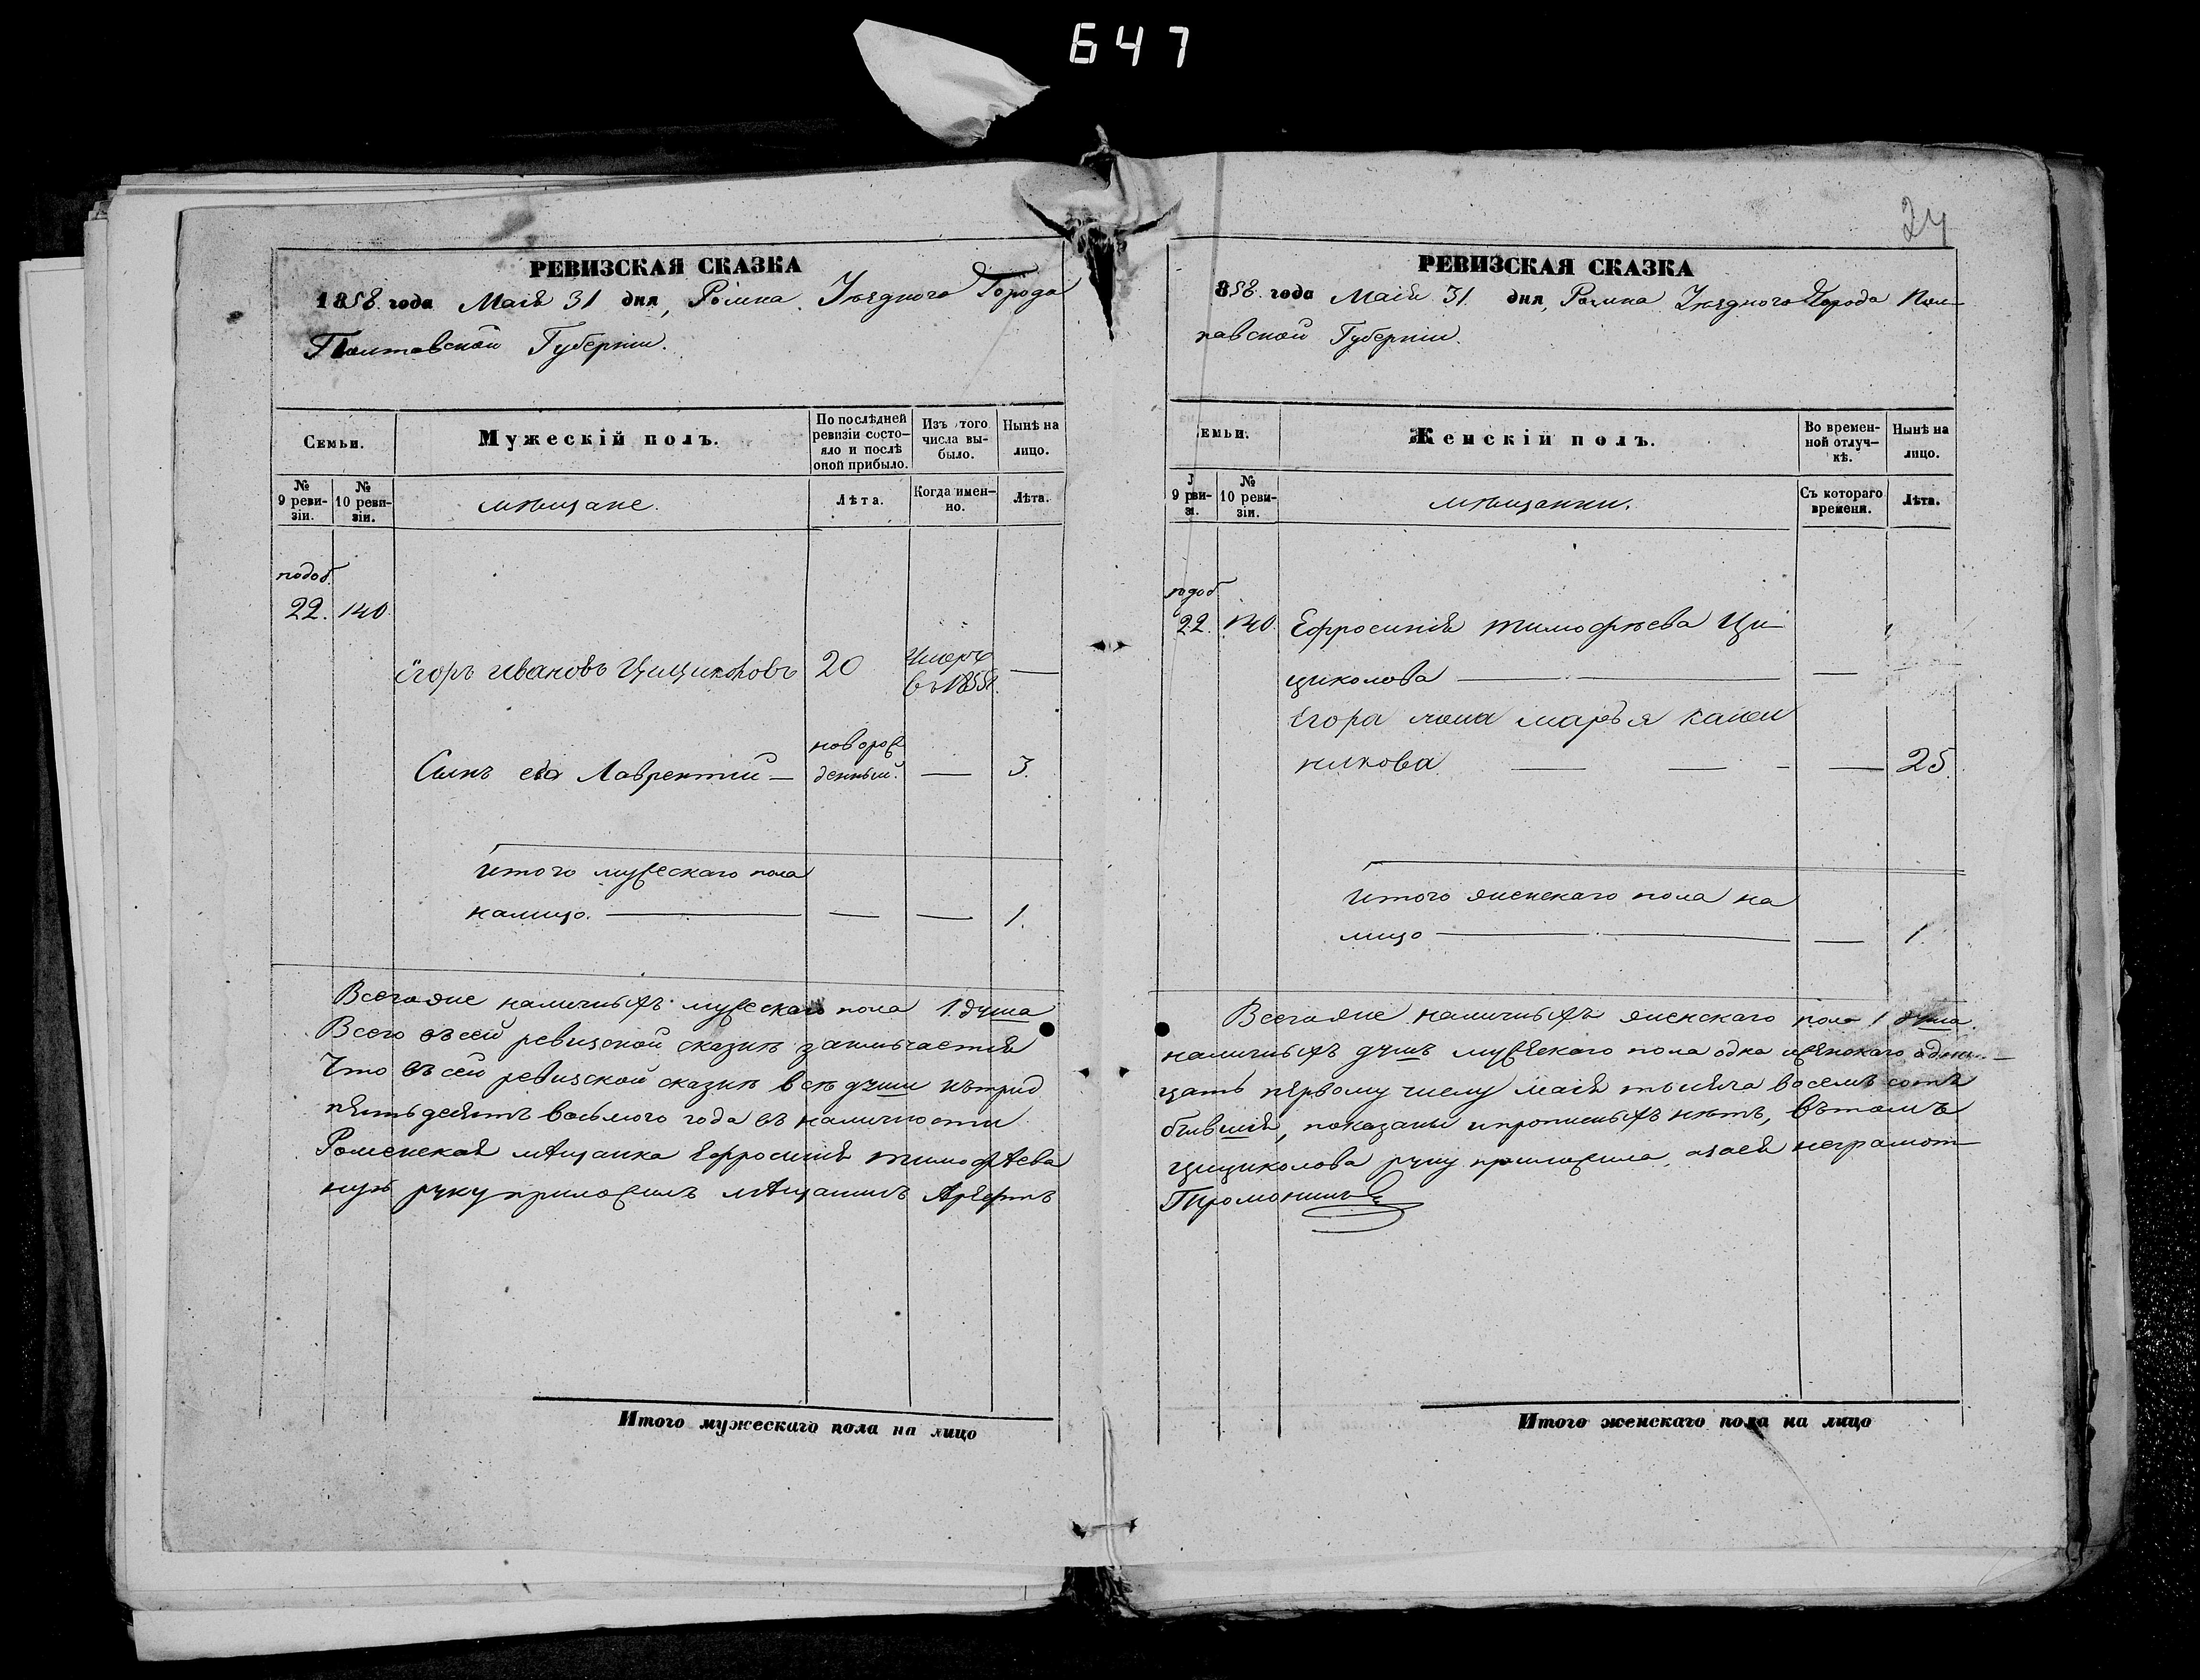 647
24
РЕВИЗСКАЯ СКАЗКА
1858 года Маія 31 дня, Ромна Уѣзднаго Города
Полтавской Губерніи.
Семьи.
Мужескій полъ.
По послѣдней
ревизіи состо-
яло и послѣ
оной прибыло.
Изъ того
числа вы-
было.
Нынѣ на
лицо.
№
9 реви-
зіи.
№
10 реви-
зіи.
мѣщане.
Лѣта.
Когда имен-
но.
Лѣта.
подоб.
22. 140.
Егоръ Ивановъ Цициколовъ 20 Умеръ
въ 1855г. —
Сынъ его Лаврентій — новорож
денный. — 3.
Итого мужескаго пола
налицо. — — — 1.
Всего же наличныхъ мужескаго пола 1. душа
Всего въ сей ревизской сказкѣ заключается
Что въ сей ревизской сказкѣ всѣ души къ трид
пятьдесятъ восьмого года въ наличности
Роменская мѣщанка Ефросинія Тимофѣева
ную руку приложилъ мѣщанинъ
РЕВИЗСКАЯ СКАЗКА
858 года Маія 31. дня, Ромна Уѣзднаго Города Пол-
тавской Губерніи.
емьи.
Женскій полъ.
Во времен-
ной отлуч-
кѣ.
Нынѣ на
лицо.
9 рви-
зі.
№
10 реви-
зіи.
мѣщанки.
Съ котораго
времени.
Лѣта.
подоб
22. 140. Ефросинія Тимофѣева Ци-
циколова — — —
Егора жена Марья
никова — — — — 25.
Итого женскаго пола на
лицо — — — 1.
Всего же наличныхъ женскаго пола 1 душа.
наличныхъ душъ мужескаго пола одна и женскаго одна. —
цать первому числу маія тысяча восемь сотъ
бывшія, показаны и прописныхъ нѣтъ, въ томъ
Цициколова руку приложила, а за ея неграмот
Итого мужескаго пола на лицо
Итого женскаго пола на лицо